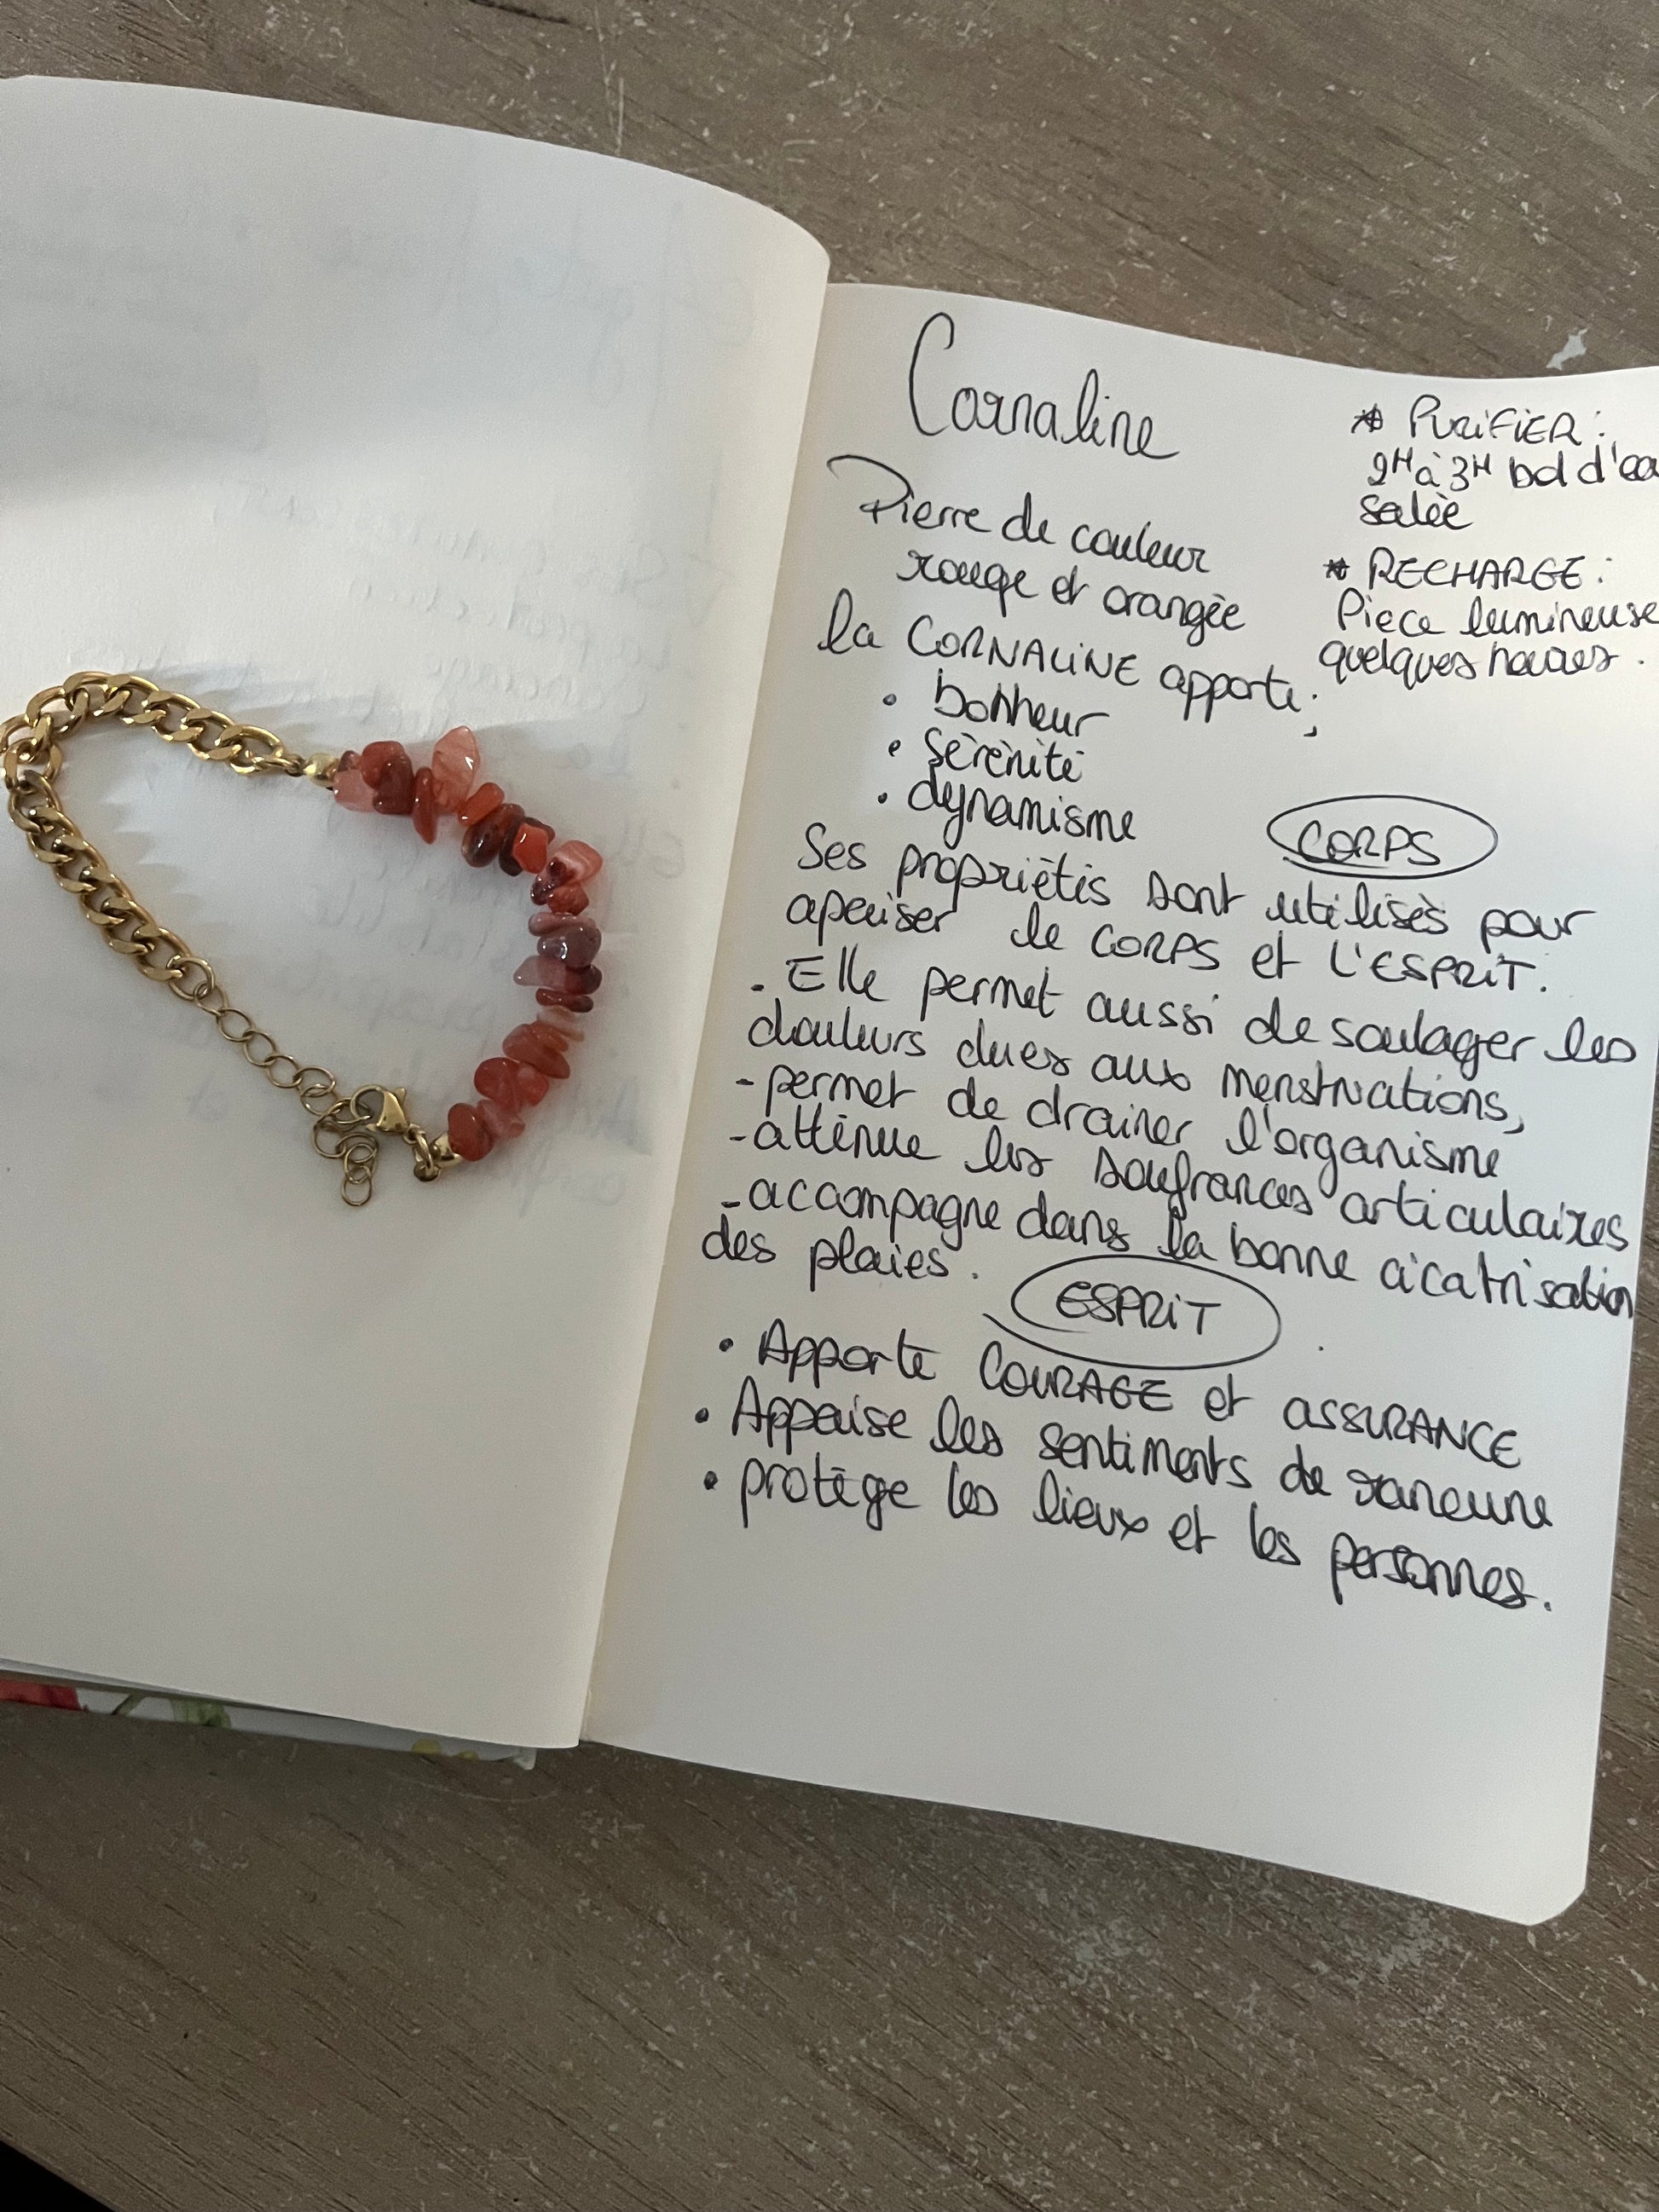 Cornaline
Pierre de couleur
rouge et orangée
la CORNALINE apporte ;
• bonheur
• Sérénité
• dynamisme
* PURiFiER :
2H à 3H bol d'eau
salée
* RECHARGE :
Pièce lumineuse
quelques heures .
CORPS
Ses propriétés sont utilisés pour
apeaiser le CORPS et L'ESPRiT.
- Elle permet aussi de soulager les
douleurs dues aux menstruations,
- permet de drainer l'organisme
- atténue les soufrances articulaires
- accompagne dans la bonne cicatrisation
des plaies .
ESPRiT
• Apporte COURAGE et ASSURANCE
• Appaise les sentiments de rancune
• protège les lieux et les personnes.